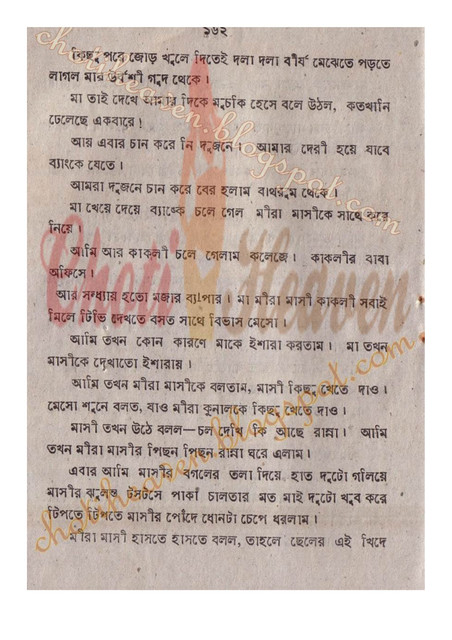 ১৬২
কিছু পরে জোড় খুলে দিতেই দলা দলা বীর্য মেঝেতে পড়তে
লাগল মার উর্বশী গুদ থেকে।
মা তাই দেখে আমার দিকে মুচকি হেসে বলে উঠল, কতখানি
ঢেলেছে একবারে!
আয় এবার চান করে নি দুজনে। আমার দেরী হয়ে যাবে
ব্যাংকে যেতে।
আমরা দুজনে চান করে বের হলাম বাথরুম থেকে।
মা খেয়ে দেয়ে ব্যাঙ্কে চলে গেল মীরা মাসীকে সাথে করে
নিয়ে।
আমি আর কাকলী চলে গেলাম কলেজে। কাকলীর বাবা
অফিসে।
আর সন্ধ্যায় হতো মজার ব্যাপার। মা মীরা মাসী কাকলী সবাই
মিলে টিভি দেখতে বসত সাথে বিভাস মেসো।
আমি তখন কোন কারণে মাকে ইশারা করতাম। মা তখন
মাসীকে দেখাতো ইশারায়।
আমি তখন মীরা মাসীকে বলতাম, মাসী কিছু খেতে দাও।
মেসো শুনে বলত, যাও মীরা কুনালকে কিছু খেতে দাও।
মাসী তখন উঠে বলল—চল দেখি কি আছে রান্না। আমি
তখন মীরা মাসীর পিছন পিছন রান্না ঘরে এলাম।
এবার আমি মাসীর বগলের তলা দিয়ে হাত দুটো গলিয়ে
মাসীর ঝুলন্ত টসটসে পাকা চালতার মত মাই দুটো খুব করে
টিপতে টিপতে মাসীর পোঁদে ধোনটা চেপে ধরলাম।
মীরা মাসী হাসতে হাসতে বলল, তাহলে ছেলের এই খিদে
Choti Heaven
chotiheaven.blogspot.com
chotiheaven.blogspot.com